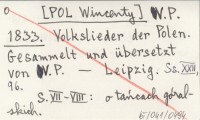 o [POL Wincenty] W.P.
1833. Volkslieder der Polen.
Gesammelt und übersetzt
von W.P. — Leipzig. Ss. XXII,
96.
S. VII–VIII: o tańcach góral-
skich.